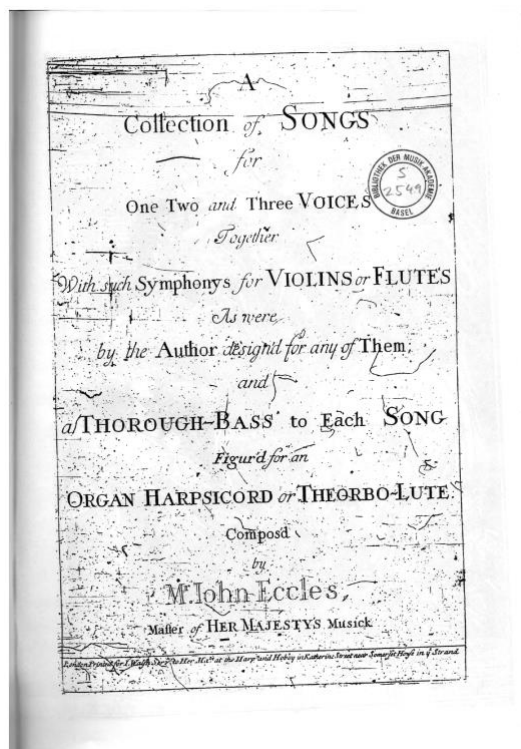 A
Collection of SONGS
for
One Two and Three VOICES
Together
With such Symphonys for VIOLINS or FLUTES
As were,
by the Author design'd for any of Them;
and
a THOROUGH-BASS to Each SONG
Figur'd for an
ORGAN HARPSICORD or THEORBO-LUTE.
Compos'd
by
Mr. Iohn Eccles,
Master of HER MAJESTY'S Musick
London Printed for I. Walsh Servt. to Her Matie. at the Harp and Hoboy in Katherine Street near Somerset House in ye Strand
BIBLIOTHEK DER MUSIK AKADEMIE
S
2549
BASEL